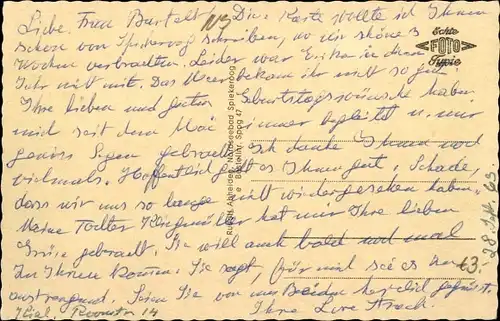 Liebe Frau Bartelt! Die Karte wollte ich Ihnen
schon von Spiekeroog schreiben, wo wir schöne 3
Wochen verbrachten. Leider war Erika in diesem
Jahr nicht mit. Das Meer bekam ihr nicht so gut.
Ihre lieben und guten Geburtstagswünsche haben
mich seit dem Mai immer begleitet u. mir
gewiss Segen gebracht. Ich danke Ihnen noch
vielmals. Hoffentlich geht es Ihnen gut. Schade,
dass wir uns so lange nicht wiedergesehen haben.
Meine Tochter hat mir Ihre lieben
Grüße gebracht. Sie will auch bald noch mal
zu Ihnen kommen. Sie sagt, für mich sei es zu
anstrengend. Seien Sie von uns Beiden herzlich gegrüsst.
Kiel, 14 Ihre
Echte
FOTO
Typie
Nordseebad Spiekeroog
63.